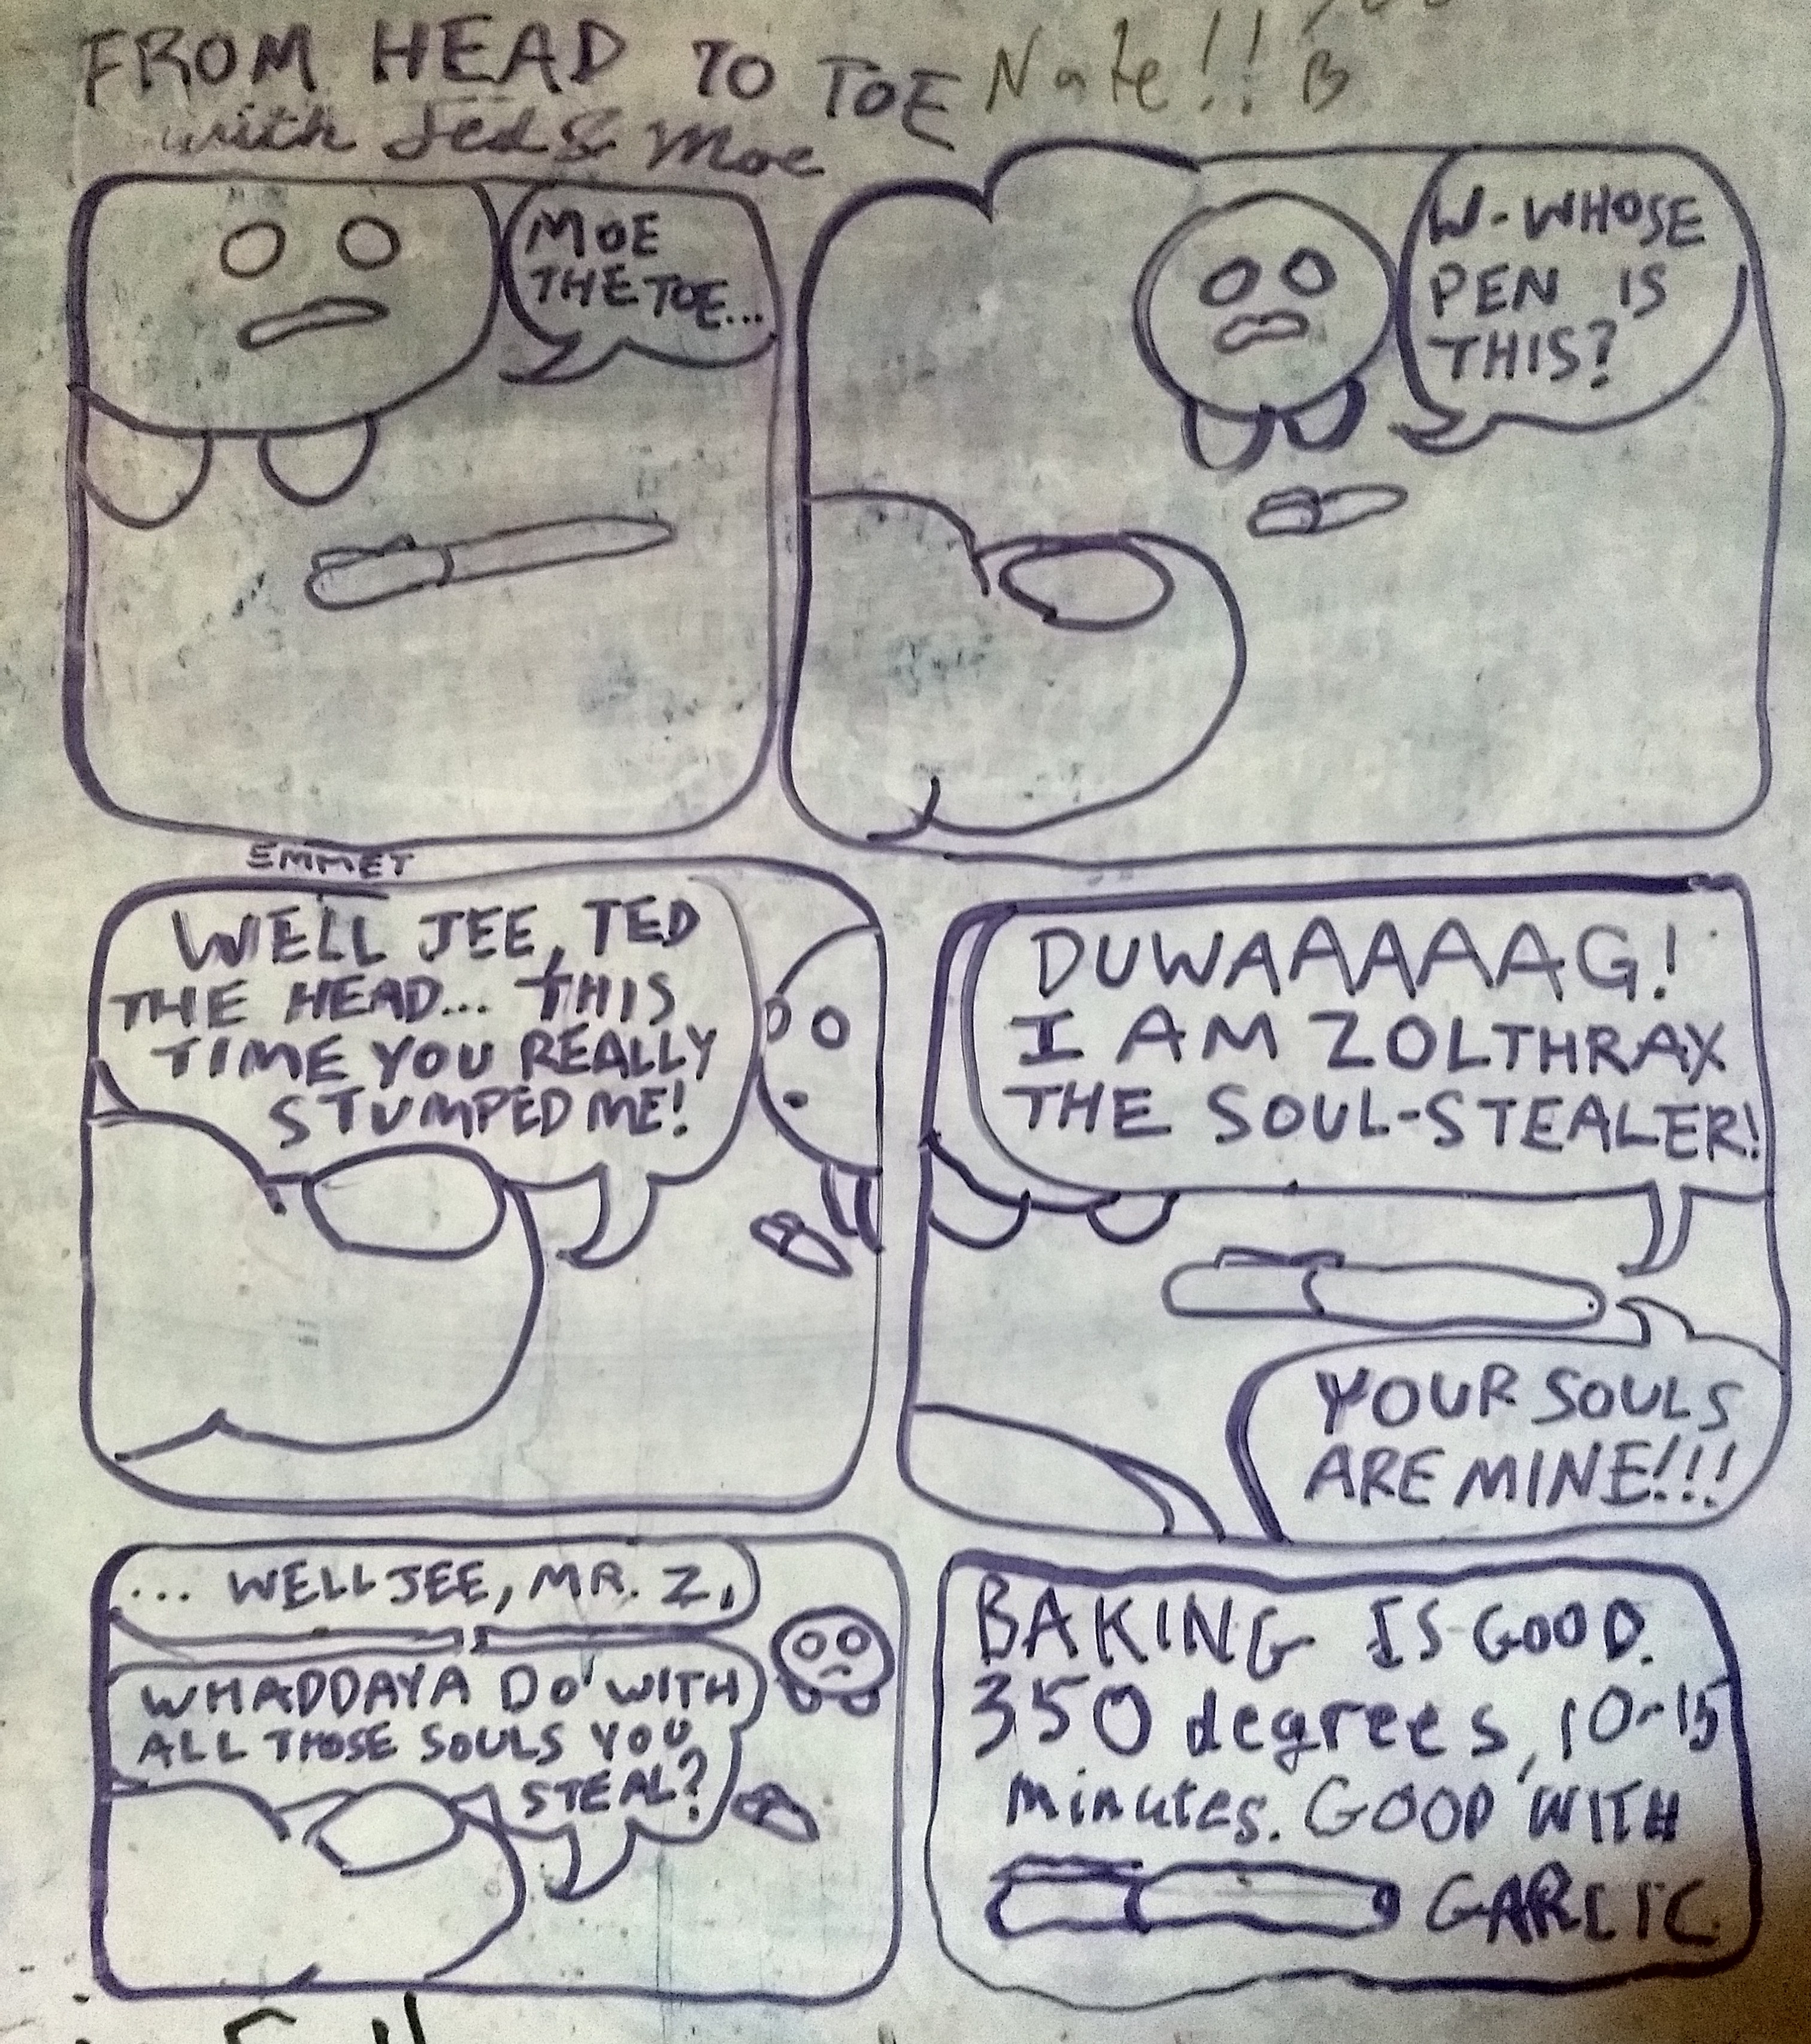 FROM HEAD TO TOE Nate!! B
with Ted & Moe
MOE
THE TOE...
W-WHOSE
PEN IS
THIS?
EMMET
WELL JEE, TED
THE HEAD... THIS
TIME YOU REALLY
STUMPED ME!
DUWAAAAAG!
I AM ZOLTHRAX
THE SOUL-STEALER!
YOUR SOULS
ARE MINE!!!
... WELL JEE, MR. Z,
WHADDAYA DO WITH
ALL THOSE SOULS YOU
STEAL?
BAKING IS GOOD.
350 degrees, 10-15
minutes. GOOD WITH
GARLIC